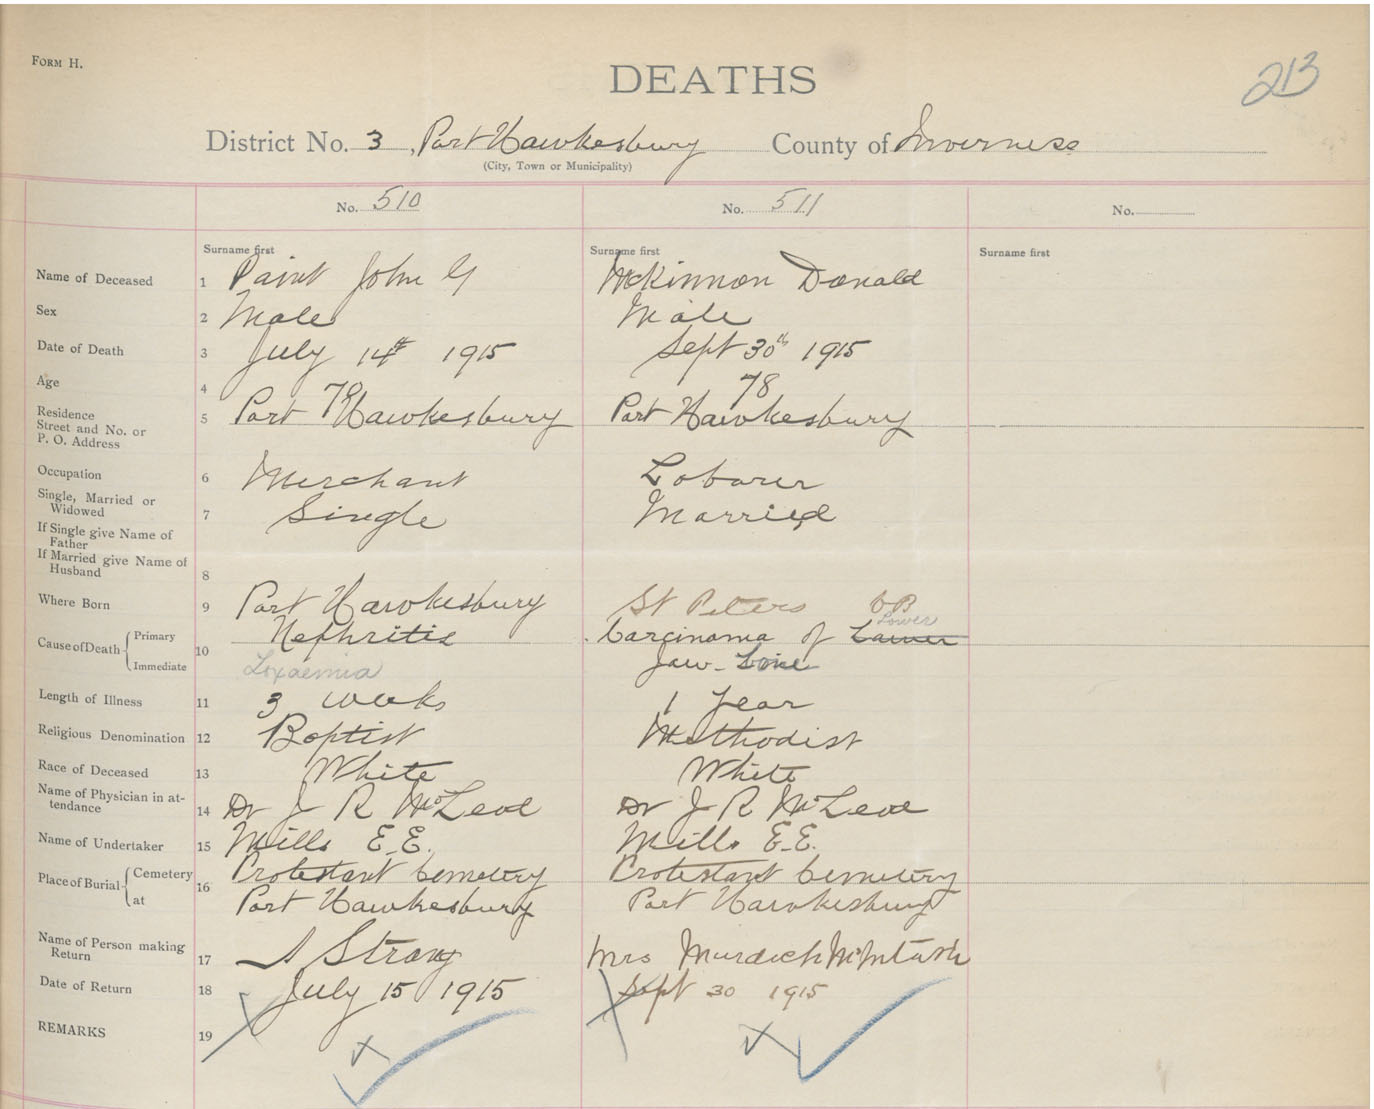 FORM H.
DEATHS
213
District No. 3, Port Hawkesbury County of Inverness
(City, Town or Municipality)
No. 510 No. 511 No.
Surname first Surname first Surname first
Name of Deceased 1 Paint John G McKinnon Donald
Sex 2 Male Male
Date of Death 3 July 14th 1915 Sept 30th 1915
Age 4 78
Residence Street and No. or P. O. Address 5 Port Hawkesbury Port Hawkesbury
Occupation 6 Merchant Laborer
Single, Married or Widowed 7 Single Married
If Single give Name of Father
If Married give Name of Husband 8
Where Born 9 Port Hawkesbury St Peters CB
Cause of Death Primary 10 Nephritis Carcinoma of Lower
Immediate Toxaemia Jaw-bone
Length of Illness 11 3 weeks 1 Year
Religious Denomination 12 Baptist Methodist
Race of Deceased 13 White White
Name of Physician in attendance 14 Dr J R McLeod Dr J R McLeod
Name of Undertaker 15 Mills E.E. Mills E.E.
Place of Burial Cemetery 16 Protestant Cemetery Protestant Cemetery
at Port Hawkesbury Port Hawkesbury
Name of Person making Return 17 Mrs Murdich McIntosh
Date of Return 18 July 15 1915 Sept 30 1915
REMARKS 19